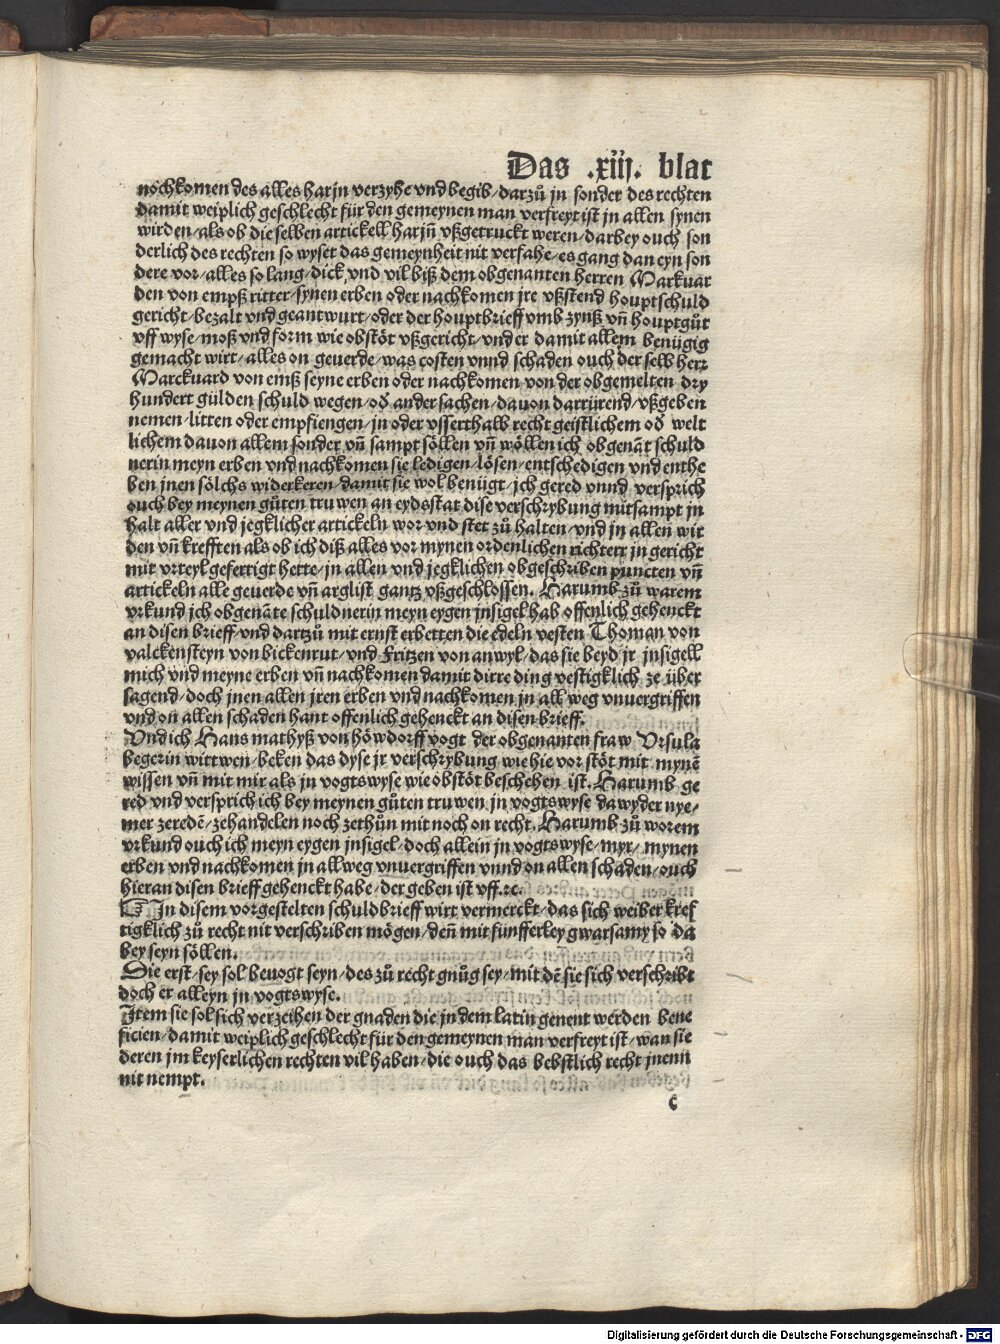 Das .xiij. blat
nochkomen des alles harjn verzyhe vnd begib/darzů jn sonder des rechten
damit weiplich geschlecht für den gemeynen man verfreyt ist jn allen synen
wirden/als ob die selben artickell harjñ vßgetruckt weren/darbey ouch son
derlich des rechten so wyset das gemeynheit nit verfahe/es gang dan eyn son
dere vor/alles so lang/dick vnd vil biß dem obgenanten herren Markuar
den von empß ritter/synen erben oder nachkomen jre vßstend houptschuld
gericht/bezalt vnd geantwurt/oder der houptbrieff vmb zynß vñ houptgůt
vff wyse/moß vnd form wie obstöt vßgericht/vnd er damit allem benügig
gemacht wirt/alles on geuerde/was costen vnnd schaden ouch der selb herr
Marckuard von emß seyne erben oder nachkomen von der obgemelten dry
hundert gülden schuld wegen/od̄ ander sachen/dauon darrürend/vßgeben
nemen/litten oder empfiengen/jn oder vsserthalb recht geistlichem od̄ welt
lichem dauon allem sonder vñ sampt söllen vñ wöllen ich obgenāt schuld
nerin meyn erben vnd nachkomen sie ledigen/lösen/entschedigen vnd enthe
ben jnen sölchs widerkeren/damit sie wol benügt/jch gered vnnd versprich
ouch bey meynen gůten truwen an eydsstat dise verschrybung mitsampt jn
halt aller vnd jegklicher artickeln wor vnd stet zů halten/vnd jn allen wir
den vñ krefften als ob ich diß alles vor mynen ordenlichen richterr jn gericht
mit vrteyl gefertigt hette/jn allen vnd jegklichen obgeschriben puncten vñ
artickeln alle geuerde vñ arglist gantz vßgeschlossen. Harumb zů warem
vrkund jch obgenāte schuldnerin meyn eygen jnsigel hab offenlich gehenckt
an disen brieff/vnd dartzů mit ernst erbetten die edeln vesten Thoman von
valckensteyn von bickenrut/vnd Fritzen von anwyl/das sie beyd jr jnsigell
mich vnd meyne erben vñ nachkomen damit dirre ding vestigklich ze über
sagend/doch jnen allen jren erben vnd nachkomen jn all weg vnuergriffen
vnd on allen schaden hant offenlich gehenckt an disen brieff.
Vnd ich Hans mathyß von höwdorff vogt der obgenanten fraw Vrsula
begerin wittwen/beken das dyse jr verschrybung wie hie vor stöt mit mynē
wissen vñ mit mir als jn vogtswyse wie obstöt beschehen ist. Harumb ge
red vnd versprich ich bey meynen gůten truwen jn vogtswyse da wyder nye/
mer zeredē/zehandelen noch zethůn mit noch on recht. Harumb zů worem
vrkund ouch ich meyn eygen jnsigel/doch allein jn vogtswyse/myr/mynen
erben vnd nachkomen jn allweg vnuergriffen vnnd on allen schaden/ouch
hieran disen brieff gehenckt habe/der geben ist vff.ꝛc.
¶ In disem vorgestelten schuldbrieff wirt vermerckt/das sich weiber kref
tigklich zů recht nit verschriben mögen/deñ mit fünfferley gwarsamy so da
bey seyn söllen.
Die erst/sey sol beuogt seyn/des zů recht gnůg sey/mit dē sie sich verschribt
doch er alleyn jn vogtswyse.
Item sie sol sich verzeihen der gnaden die jn dem latin genent werden bene
ficien/damit weiplich geschlecht für den gemeynen man verfreyt ist/wan sie
deren jm keyserlichen rechten vil haben/die ouch das bebstlich recht jnem
nit nempt.
c
Digitalisierung gefördert durch die Deutsche Forschungsgemeinschaft - DFG